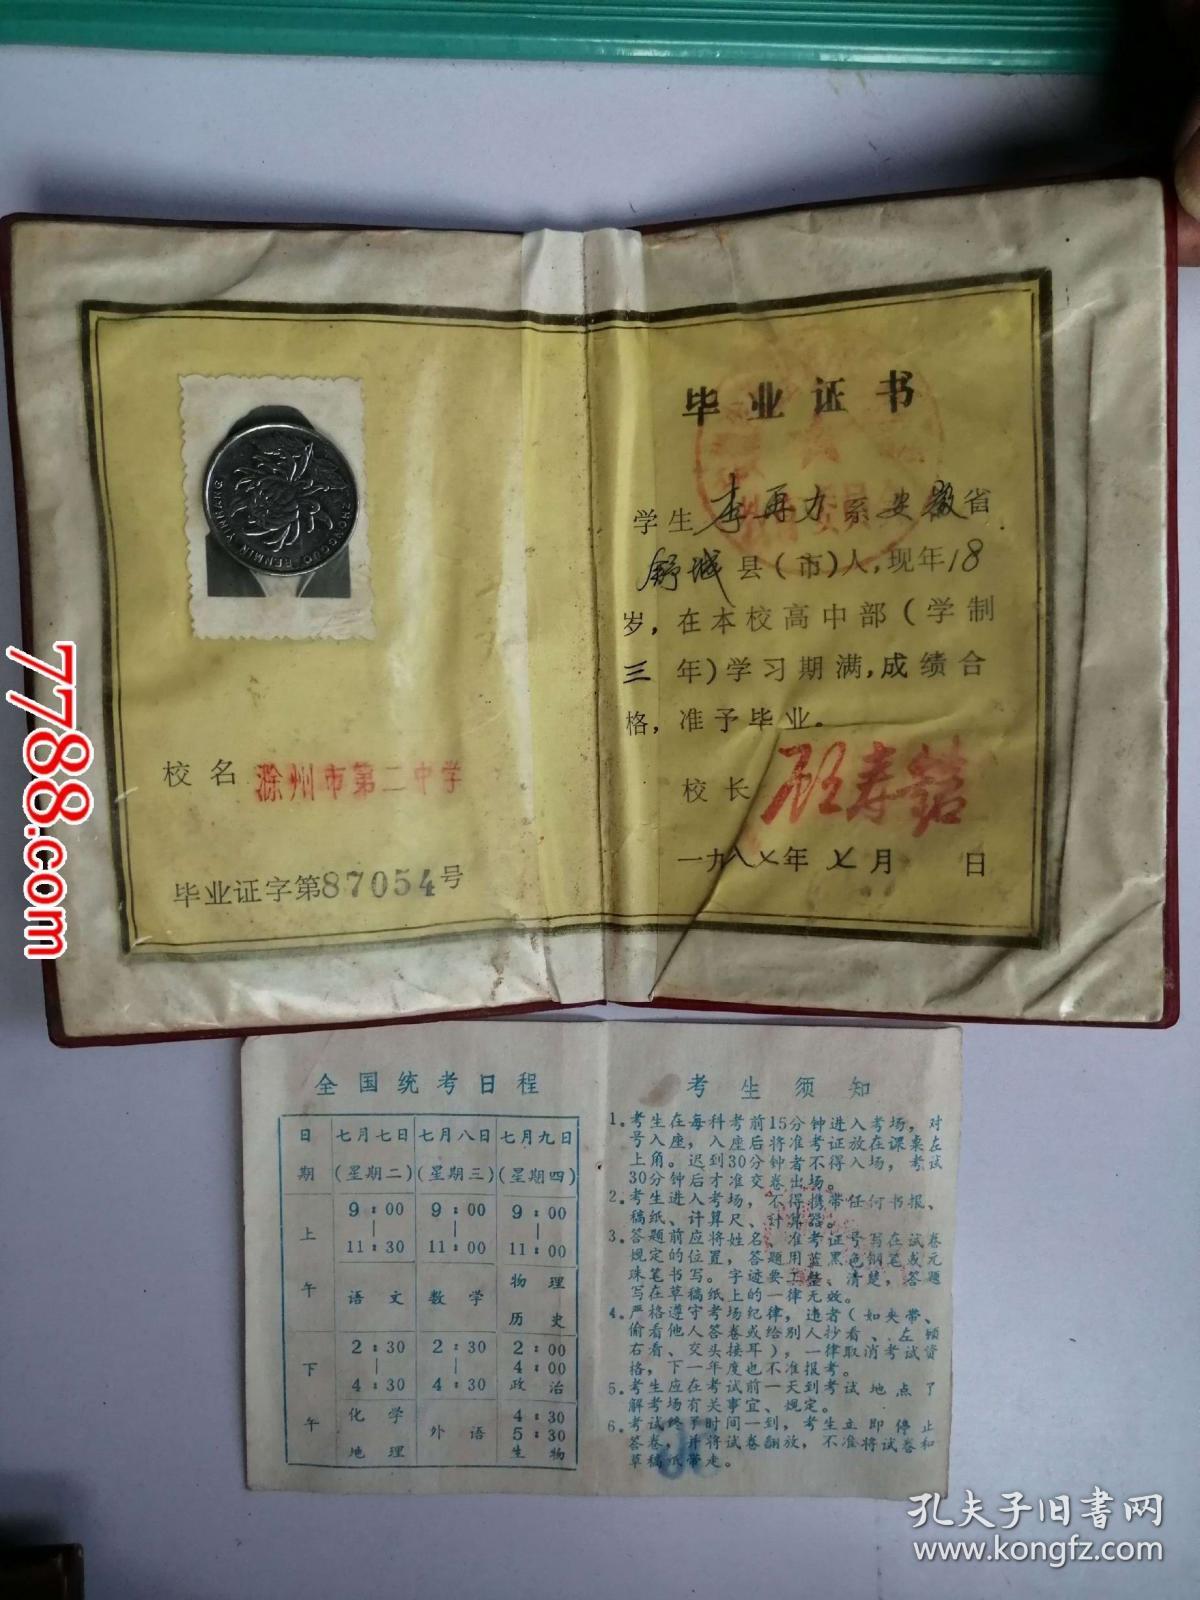 毕业证书
学生李再力系安徽省
舒城县(市)人,现年18
岁,在本校高中部(学制
三年)学习期满,成绩合
格,准予毕业。
校长
一九八七年七月 日
校名 滁州市第二中学
毕业证字第87054号
RENMIN YINHANG
全国统考日程
日期 七月七日(星期二) 七月八日(星期三) 七月九日(星期四)
上午 9:00|11:30 语文 9:00|11:00 数学 9:00|11:00 物理 历史
下午 2:30|4:30 化学 地理 2:30|4:30 外语 2:00 4:00 政治 4:30 5:30 生物
考生须知
1.考生在每科考前15分钟进入考场,对
号入座,入座后将准考证放在课桌左
上角。迟到30分钟者不得入场,考试
30分钟后才准交卷出场。
2.考生进入考场,不得携带任何书报、
稿纸、计算尺、计算器。
3.答题前应将姓名、准考证号写在试卷
规定的位置,答题用蓝黑色钢笔或元
珠笔书写。字迹要工整、清楚,答题
写在草稿纸上的一律无效。
4.严格遵守考场纪律,违者(如夹带、
偷看他人答卷或给别人抄看、左顾
右看、交头接耳),一律取消考试资
格,下一年度也不准报考。
5.考生应在考试前一天到考试地点了
解考场有关事宜、规定。
6.考试终了时间一到,考生立即停止
答卷,并将试卷翻放,不准将试卷和
草稿纸带走。
7788.com
孔夫子旧书网
www.kongfz.com